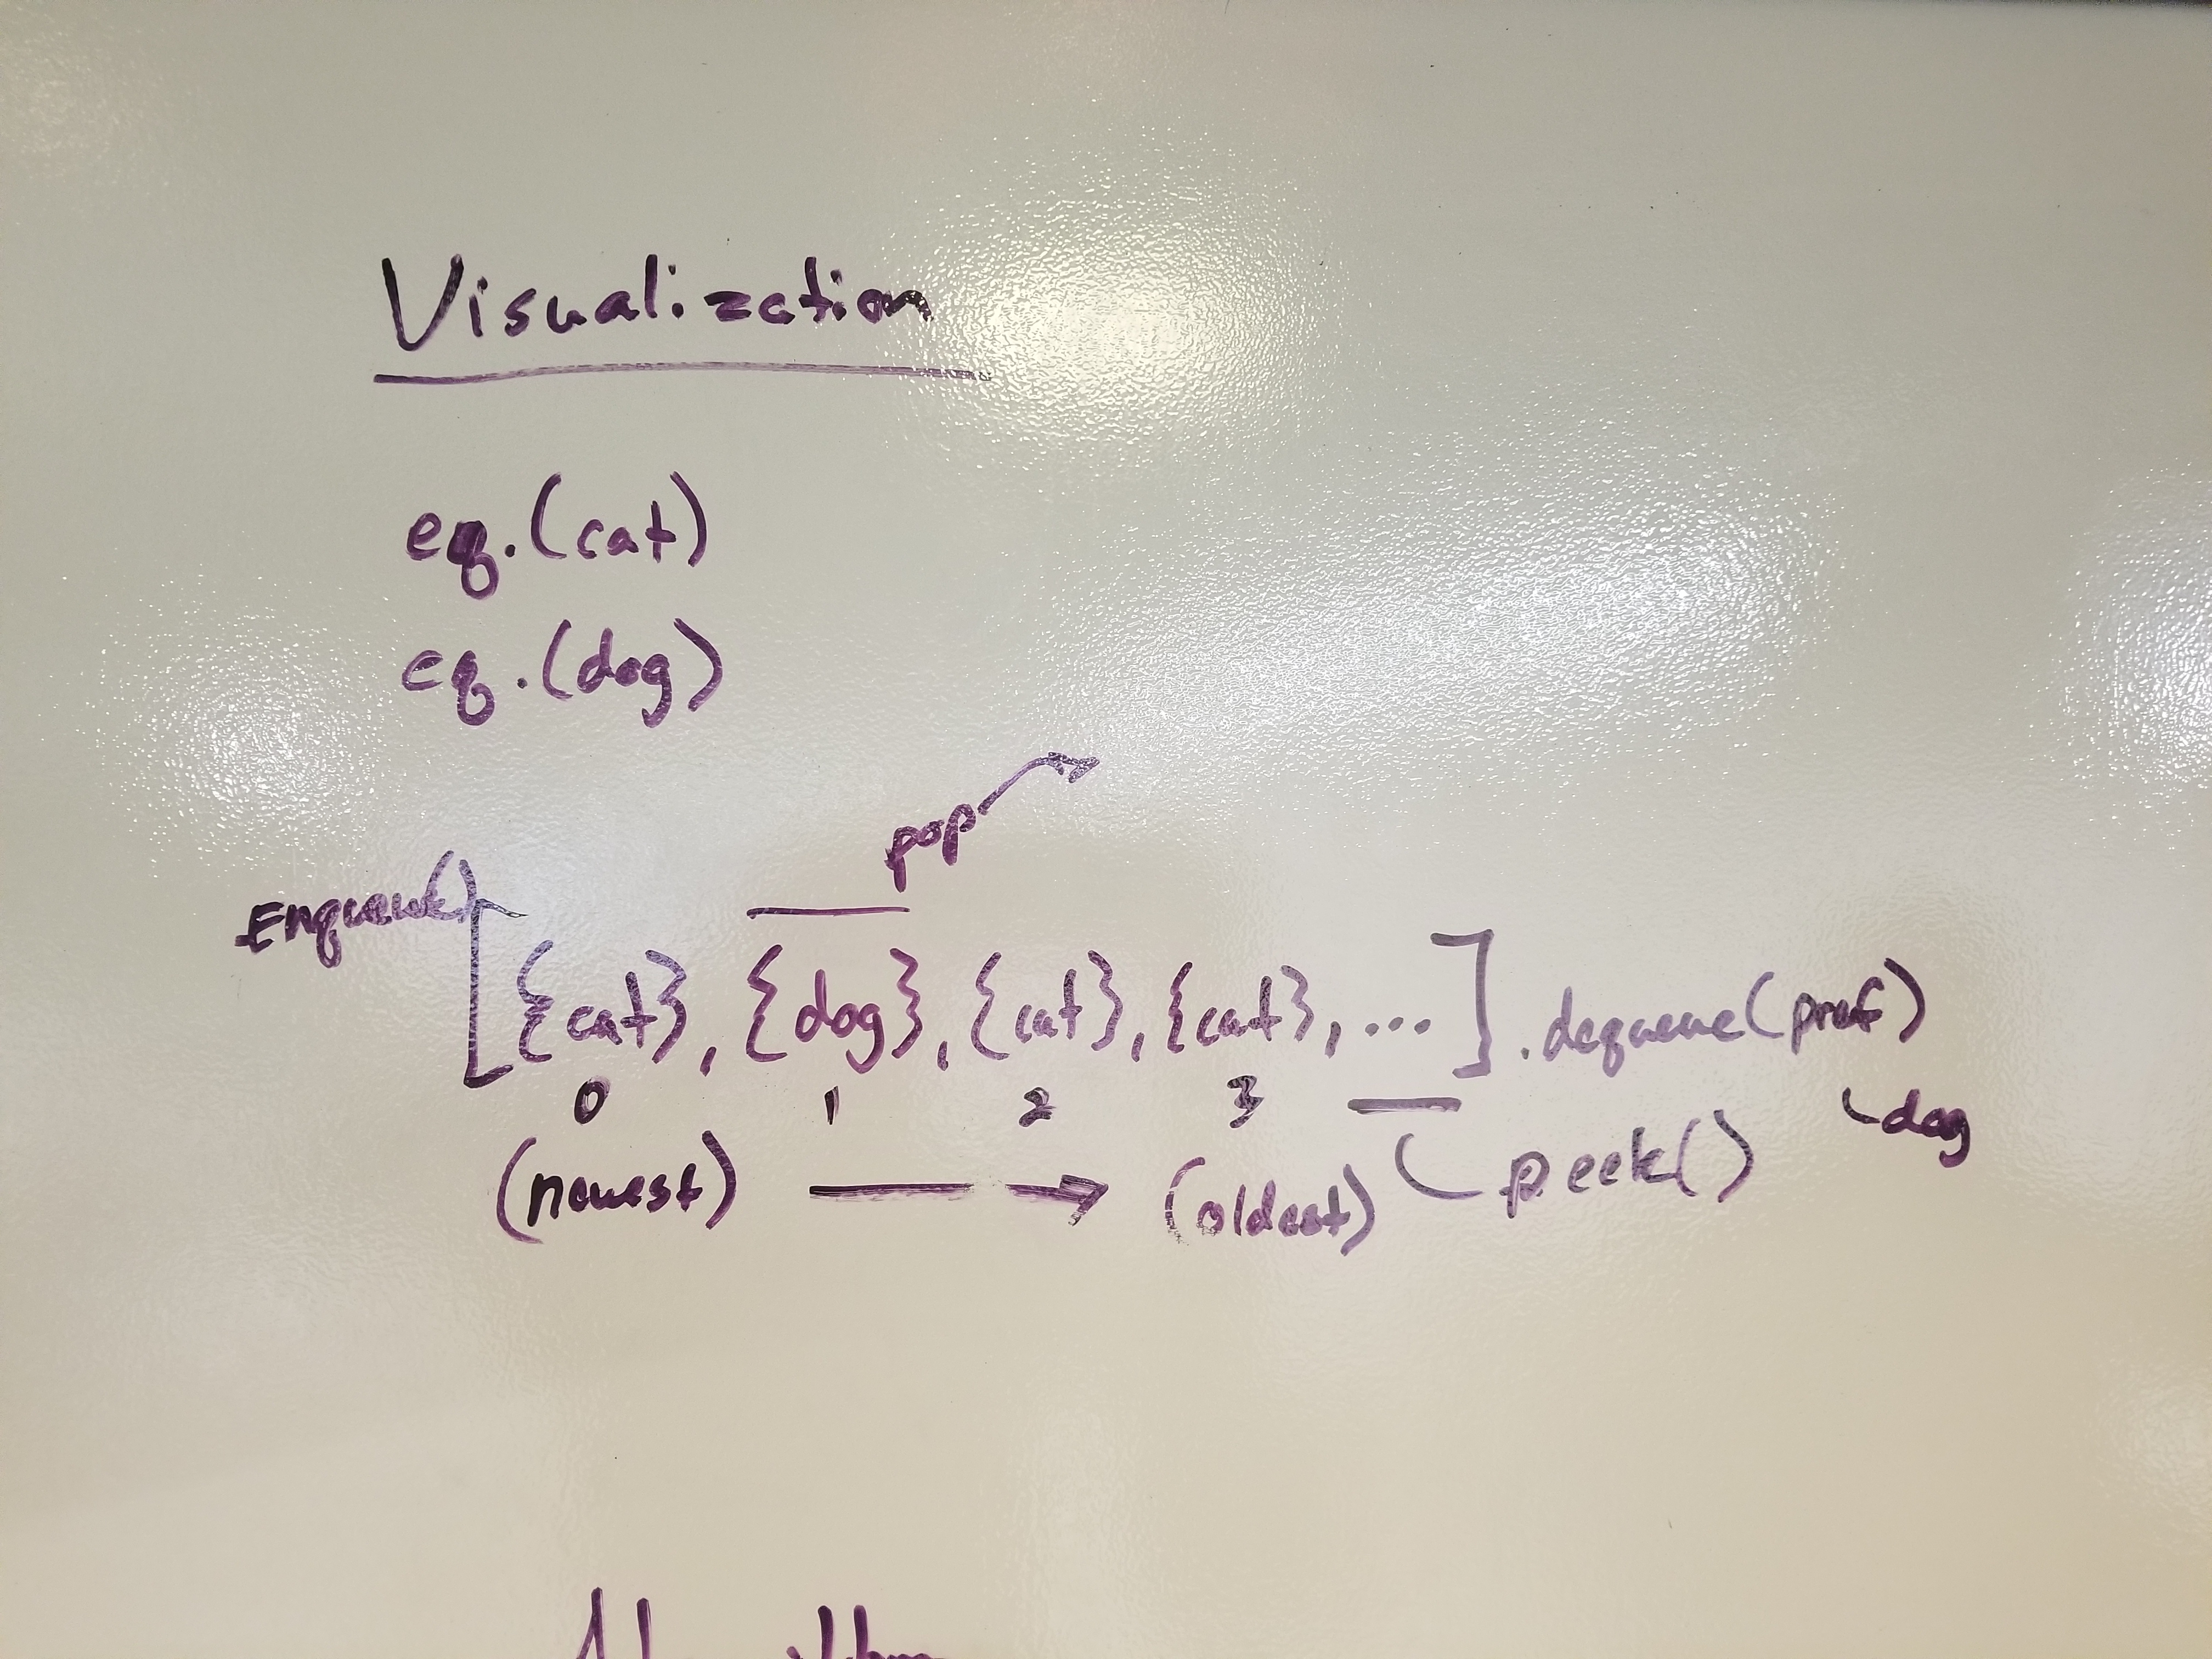 Visualization
eq.(cat)
eq.(dog)
pop
Enqueue()
[{cat}, {dog}, {cat}, {cat}, ...].dequeue(pref)
0 1 2 3
dog
(newest) (oldest) peek()